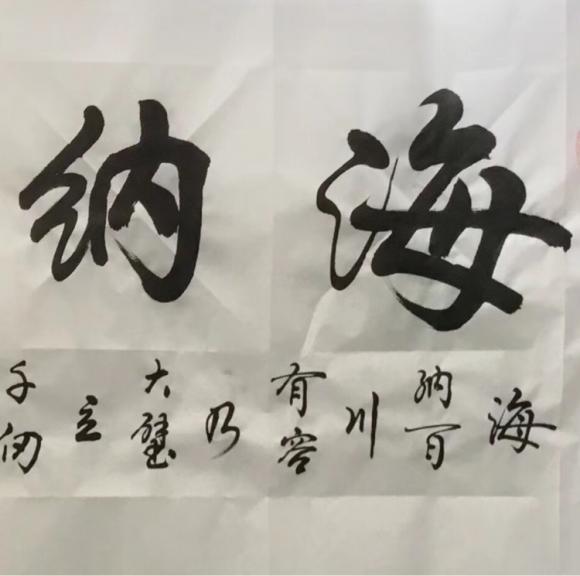 海纳
海纳百川有容乃大壁立千仞